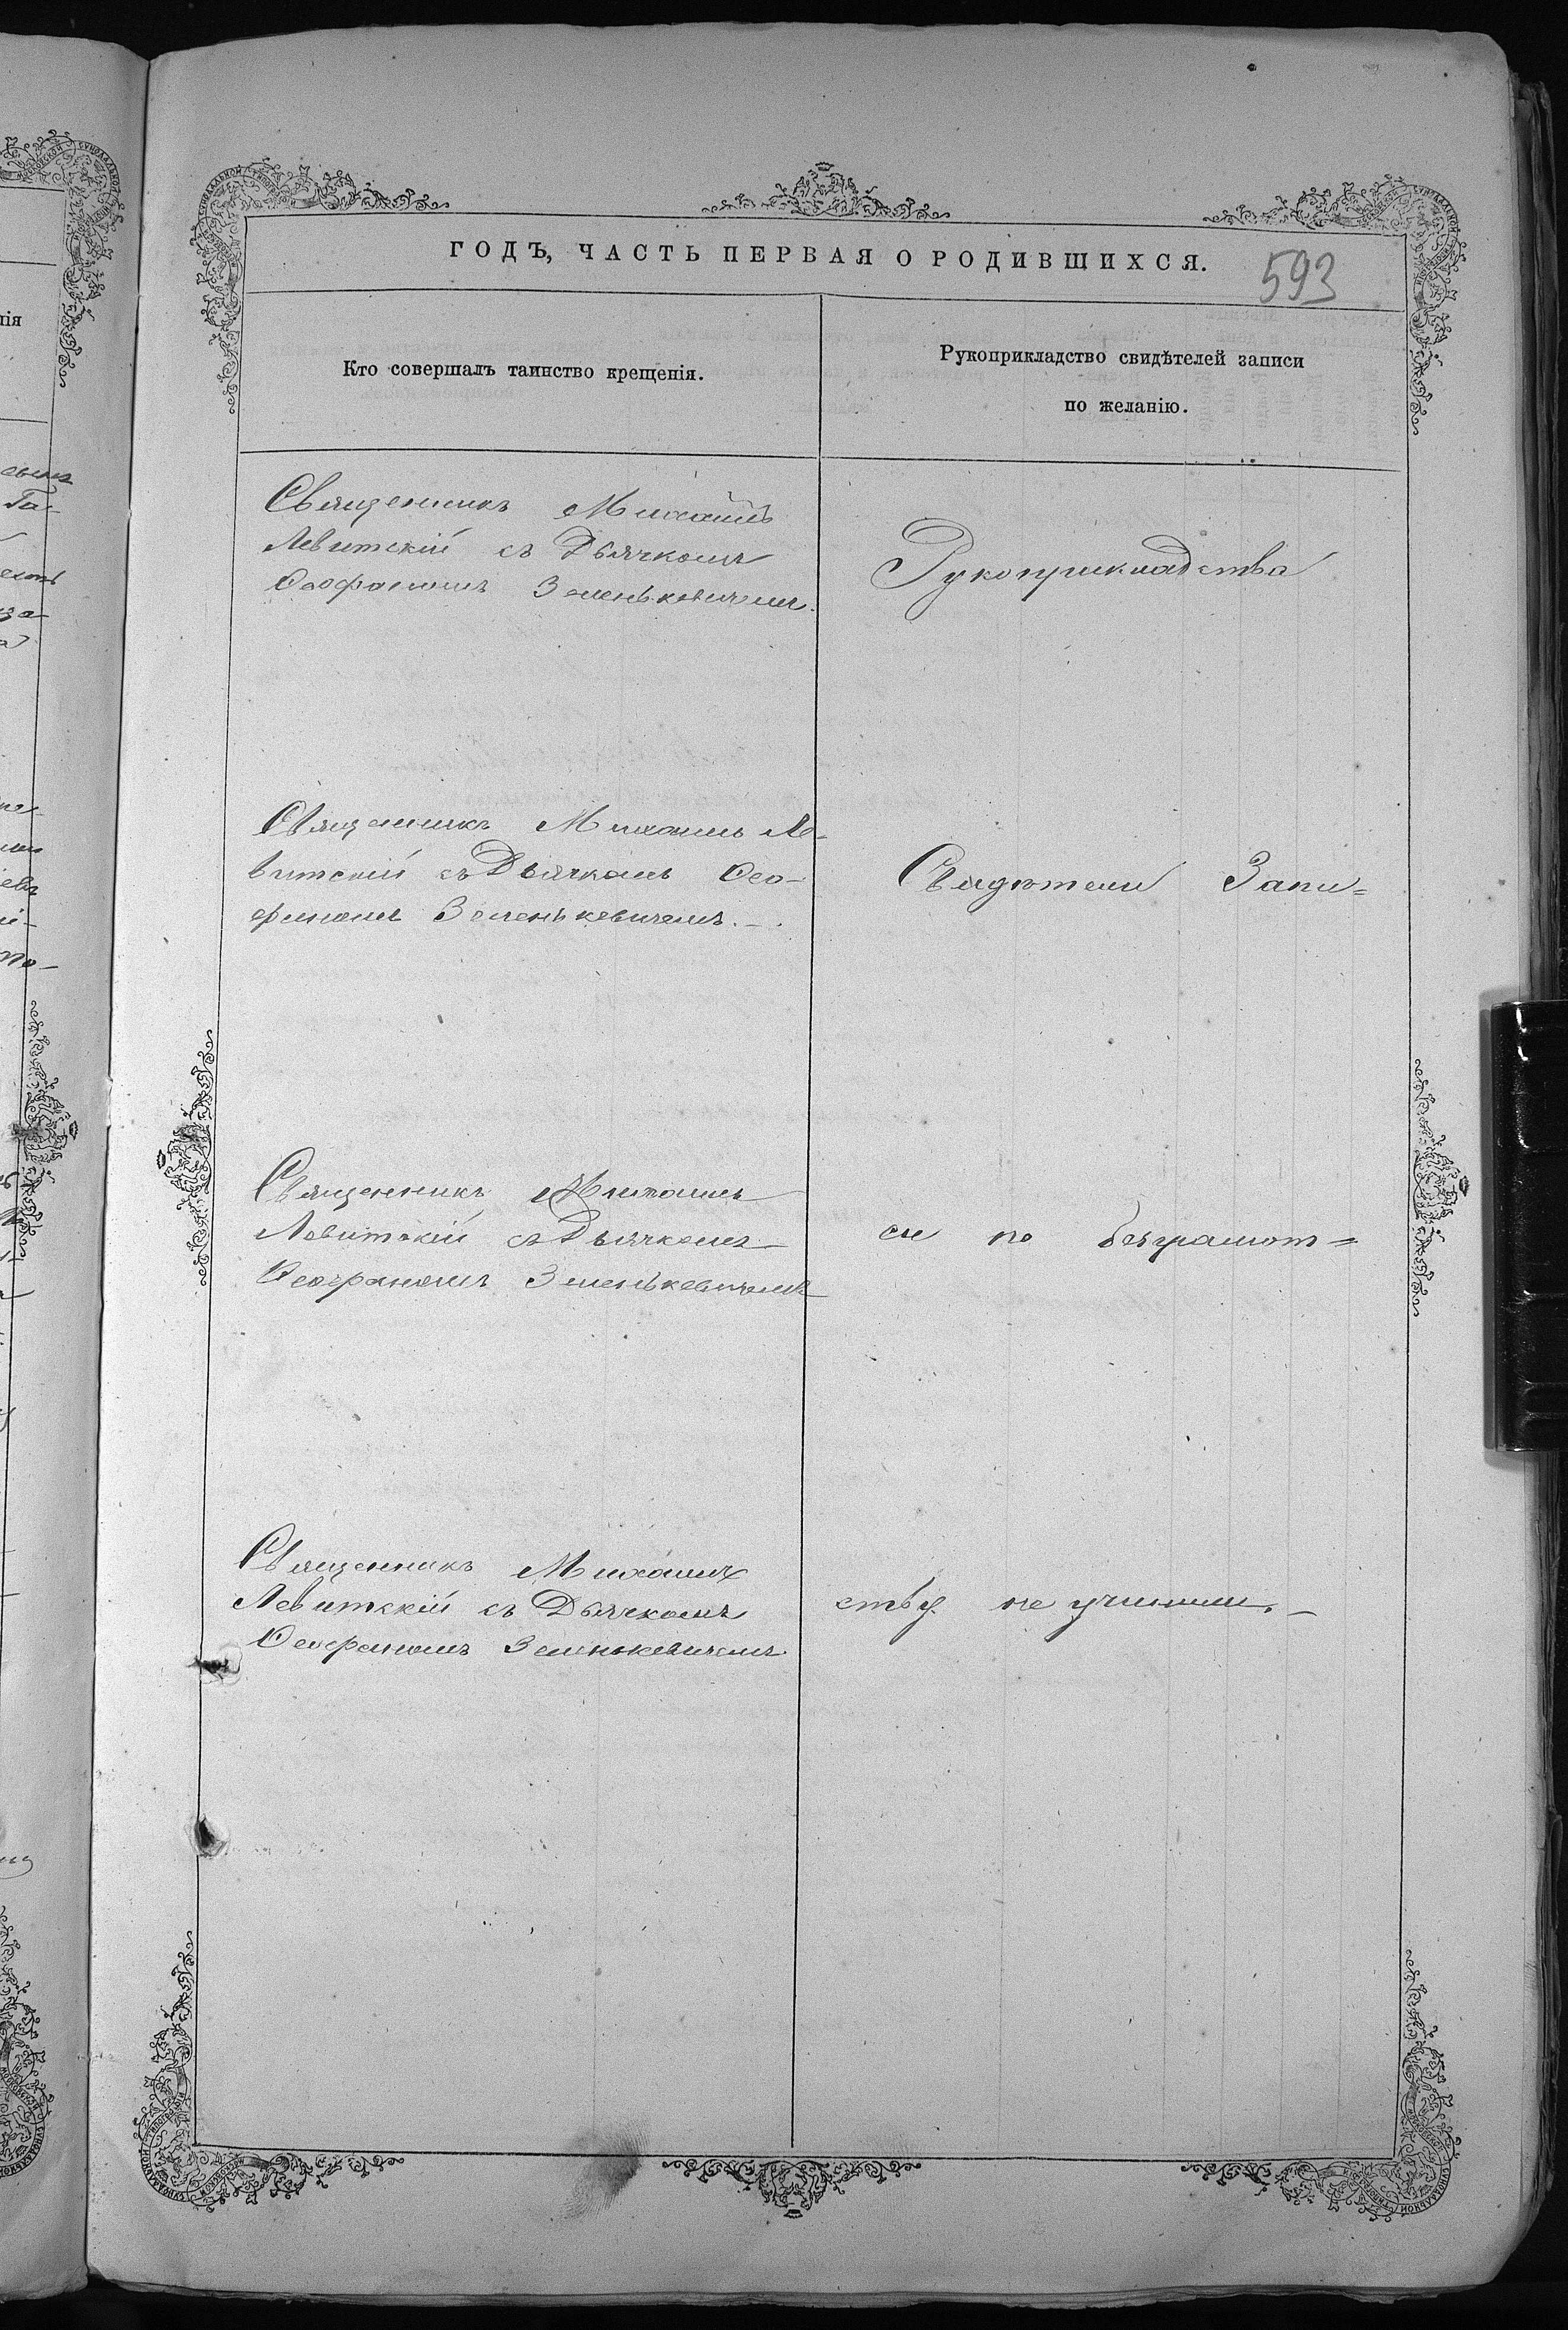 ГОДЪ, ЧАСТЬ ПЕРВАЯ О РОДИВШИХСЯ.
593
Кто совершалъ таинство крещенія.
Рукоприкладство свидѣтелей записи
по желанію.
Священникъ Михаилъ
Левитскій съ Дьячкомъ
Ѳеофаномъ Зеленькевичемъ.
Рукоприкладства
Священникъ Михаилъ Ле-
витскій съ Дьячкомъ Ѳео-
фаномъ Зеленькевичемъ.
Свидѣтели Запи=
Священникъ Михаилъ
Левитскій съ Дьячкомъ
Ѳеофаномъ Зеленькевичемъ
си по безграмот=
Священникъ Михаилъ
Левитскій съ Дьячкомъ
Ѳеофаномъ Зеленькевичемъ
ству не учинили.